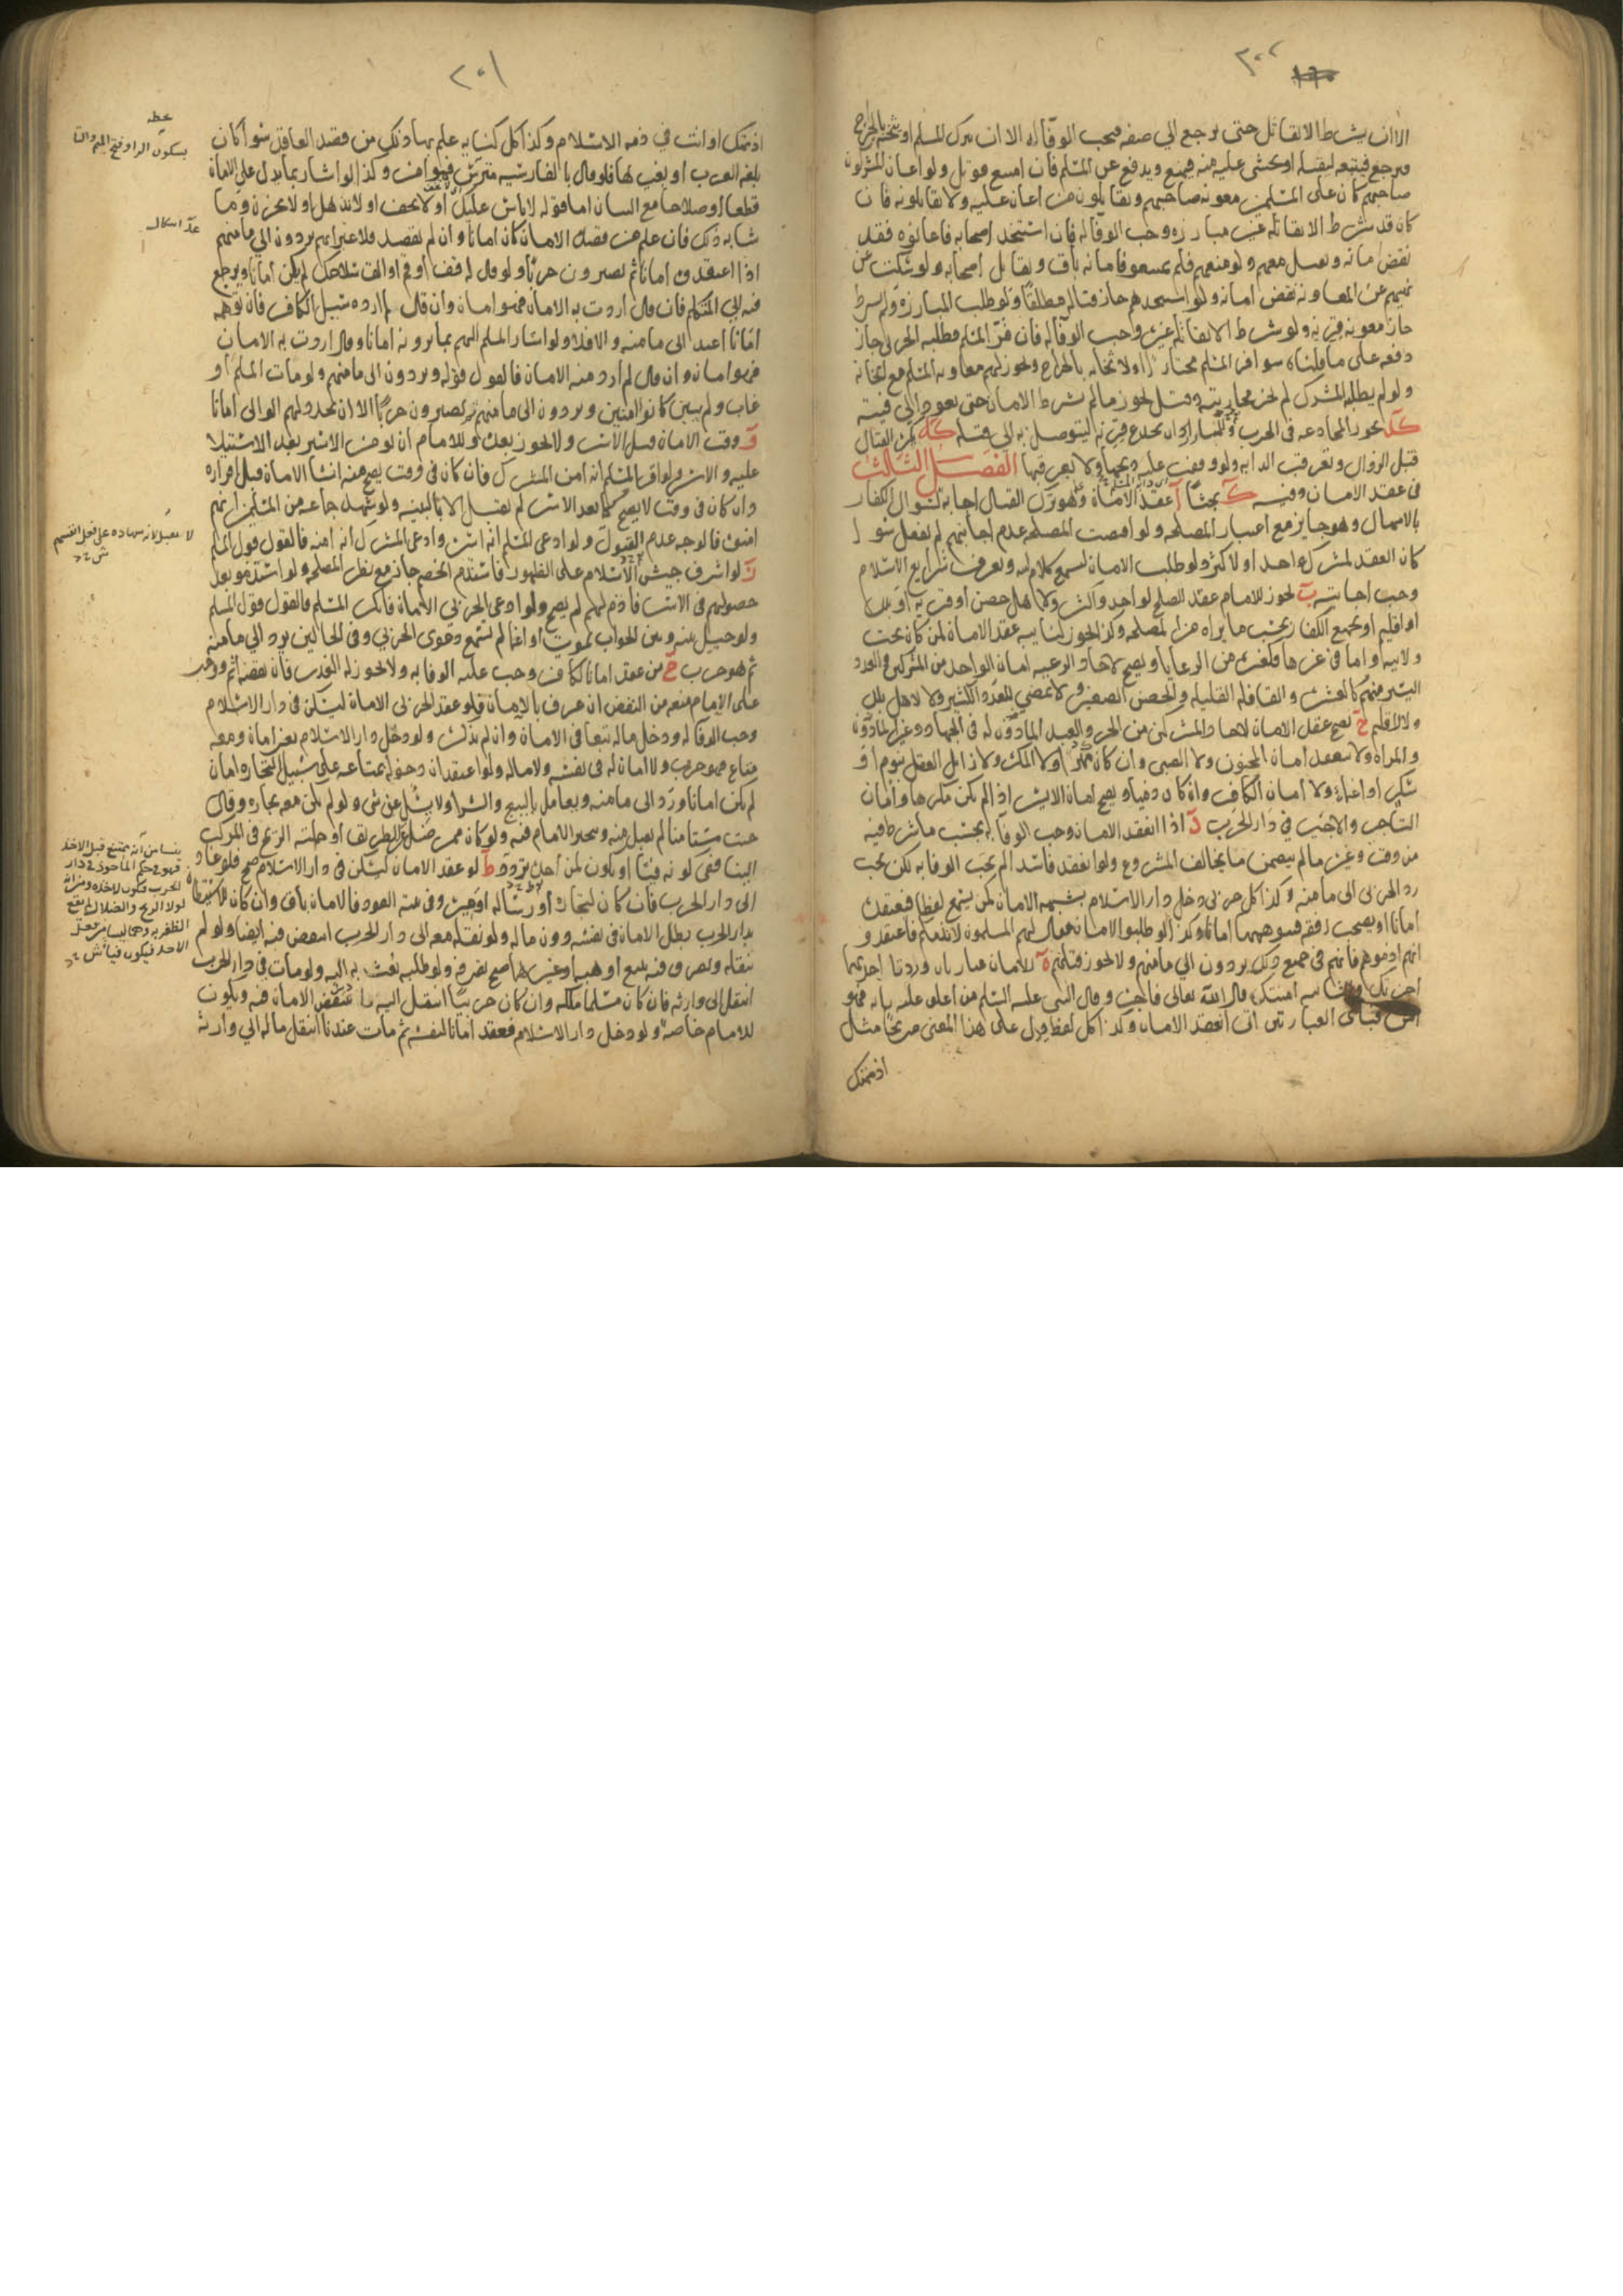 ٢٠٢
الا ان يشرط الا يقاتل حتى يرجع الى صفه فيجب الوفاء له الا ان يترك المسلم او يثخنه بالجراح
فيرجع فيتبعه ليقتله او يخشى عليه منه فيمنع ويدفع عن المسلم فان امتنع قوتل ولو اعان المشركون
صاحبهم كان على المسلمين معونة صاحبهم ويقاتلون من اعان عليه ولا يقاتلونه فان
كان قد شرط الا يقاتله غير مبارزه وجب الوفا له فان استنجد اصحابه فاعانوه فقد
نقض امانه ويقتل معهم ولو منعهم فلم يمتنعوا فامانه باق ويقاتل اصحابه ولو سكت عن
نهيهم عن المعاونه نقض امانه ولو استنجدهم جاز قتاله مطلقا ولو طلب المبارزة ولم يشرط
جاز معونه قرنه ولو شرط الا يقاتله غيره وجب الوفا له فان فر المسلم فطلبه الحربى جاز
دفعه على ما قلناه سوا فر المسلم مختارا او لاثخانه بالجراح ويجوز لهم معاونه المسلم مع اثخانه
ولو لم يطلبه المشرك لم يجز محاربته وقيل يجوز ما لم يشرط الامان حتى يعود الى فيئته
كد يجوز المخادعه فى الحرب وللمبارز ان يخدع قرنه ليتوصل به الى قتله كه يكره القتال
قبل الزوال وتعرقب الدابه ولو وقفت عليه ذبحها ولا يعرقبها الفصل الثالث
فى عقد الامان وفيه كا بحثا ا عقد الامان وهو ترك القتال اجابه لسوال الكفار
بالامهال وهو جايز مع اعتبار المصلحه ولو اقتضت المصلحه عدم اجابتهم لم يفعل سوا
كان العقد لمشرك واحد او لاكثر ولو طلب الامان ليسمع كلام الله ويعرف شرايع الاسلام
وجب اجابته ب يجوز للامام عقد الصلح لواحد واكثر ولاهل حصن او قريه او بلد
او اقليم او لجميع الكفار بحسب ما يراه من المصلحه وكذا يجوز لنايبه عقد الامان لمن كان تحت
ولايته واما فى غيرها فكغيره من الرعايا ويصح لاحاد الرعيه امان الواحد من المشركين والعدد
اليسير منهم كالعشره والقافله القليله والحصن الصغير ولا يمضي للعدد الكثير ولا لاهل بلد
ولا لاقليم ج يصح عقد الامان لاحاد المشركين من الحر والعبد الماذون له فى الجهاد وغير الماذون
والمراة ولا ينعقد امان المجنون ولا الصبى وان كان مميزا ولا المكره ولا زايل العقل بنوم او
سكر او اغماء ولا امان الكافر وان كان ذميا ويصح امان الاسير اذا لم يكن مكرها وامان
التاجر والاجير فى دار الحرب د اذا انعقد الامان وجب الوفا به بحسب ما شرط فيه
من وقت وغيره ما لم يتضمن ما يخالف المشروع ولو انعقد فاسدا لم يجب الوفا به لكن يجب
رد الحربى الى مامنه وكذا كل حربى دخل دار الاسلام بشبهه الامان كمن يسمع لفظا فيعتقده
امانا او يصحب رفقه فيتوهمها امانا وكذا لو طلبوا الامان فقال لهم المسلمون لا نذمكم فاعتقدوا
انهم اذموهم فانهم فى جميع ذلك يردون الى مامنهم ولا يجوز قتلهم ه للامان عبارتان وردتا اجرتكما
اجرتك وامنتك قال الله تعالى فاجره وقال النبى عليه السلم من اغلق عليه بابه فهو
امن فباى العبارتين اتى انعقد الامان وكذا كل لفظ يدل على هذا المعنى صريحا مثل
اذممتك
٢٠١
اذممتك او انت في ذمه الاسلام وكذا كل كنايه علم بها ذلك من قصد العاقد سوا كان
بلغه العرب او بغيرها فلو قال بالفارسيه مترس فهو امن وكذا لو اشار بما يدل على الامان
قطعا او صلاحا مع البيان اما قوله لا باس عليك او لا تخف او لا تذهل او لا تحزن وما
شابه ذلك فان علم من قصده الامان كان امانا وان لم يقصد فلا غير انهم يردون الى مامنهم
اذا اعتقدوه امانا ثم يصيرون حربا ولو قال له قف او قم او الق سلاحك لم يكن امانا ويرجع
فيه الى المتكلم فان قال اردت به الامان فهو امان وان قال لم ارده سئل الكافر فان توهمه
امانا اعيد الى مامنه والا فلا ولو اشار المسلم اليهم بما يرونه امانا وقال اردت به الامان
فهو امان وان قال لم ارد منه الامان فالقول قوله ويردون الى مامنهم ولو مات المسلم او
غاب ولم يبين كانوا امنين ويردون الى مامنهم ثم يصيرون حربا الا ان يجدد لهم الوالى امانا
و وقت الامان قبل الاسر ولا يجوز بعده وللامام ان يومن الاسير بعد الاستيلا
عليه والاسر ولو اقر المسلم انه امن المشرك فان كان فى وقت يصح منه انشا الامان قبل اقراره
وان كان فى وقت لا يصح كما بعد الاسر لم يقبل الا بالبينه ولو شهد جماعه من المسلمين انهم
امنوه فالوجه عدم القبول ولو ادعى المسلم انه اسره وادعى المشرك انه امنه فالقول قول المسلم
ز لو اشرف جيش الاسلام على الظهور فاستذم الخصم جاز مع نظر المصلحه ولو استذموا بعد
حصولهم فى الاسر فاذم لهم لم يصح ولو ادعى الحربى الامان فانكر المسلم فالقول قول المسلم
ولو حيل بينه وبين الجواب بموت او اغما لم تسمع دعوى الحربي وفى الحالين يرد الى مامنه
ثم هو حرب ح من عقد امانا لكافر وجب عليه الوفا به ولا يجوز له الغدر فان نقضه اثم ووجب
على الامام منعه من النقض ان عرف بالامان فلو عقد الحربى الامان ليسكن فى دار الاسلام
وجب الوفا له ودخل ماله تبعا فى الامان وان لم يذكره ولو دخل دار الاسلام بغير امان ومعه
متاع فهو حرب ولا امان له فى نفسه ولا ماله ولو اعتقد ان دخوله بمتاعه على سبيل التجاره امان
لم يكن امانا ورد الى مامنه ويعامل بالبيع والشرا ولا يسئل عن شى ولو لم يكن معه تجاره وقال
جئت مستامنا لم يقبل منه وتخير الامام فيه ولو كان ممن ضل الطريق او حملته الريح فى المركب
الينا ففى كونه فيئا او يكون لمن اخذه تردد ط لو عقد الامان ليسكن فى دار الاسلام صح فلو عاد
الى دار الحرب فان كان لتجاره او رساله او غيره وفى نيته العود فالامان باق وان كان للاستيطان
بدار الحرب بطل الامان فى نفسه دون ماله ولو نقله معه الى دار الحرب انتقض فيه ايضا ولو لم
ينقله وتصرف فيه ببيع او هبه او غيرهما صح تصرفه ولو طلبه بعث به اليه ولو مات في دار الحرب
انتقل الى وارثه فان كان مسلما ملكه وان كان حربيا انتقل اليه وانتقض الامان فيه ويكون
للامام خاصه ولو دخل دار الاسلام فعقد امانا لنفسه ثم مات عندنا انتقل ماله الى وارثه
بخطه
بسكون الرا وفتح الميم والتا
لا يقبل لانه شهاده على فعل انفسهم